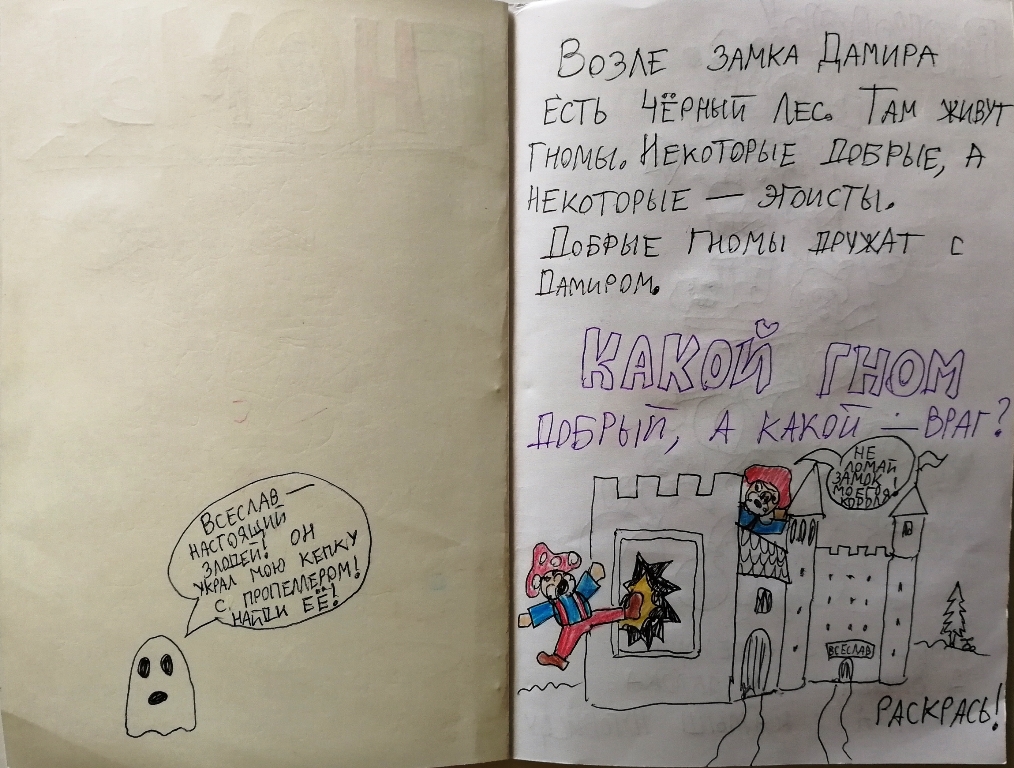 ВСЕСЛАВ —
НАСТОЯЩИЙ
ЗЛОДЕЙ! ОН
УКРАЛ МОЮ КЕПКУ
С ПРОПЕЛЛЕРОМ!
НАЙДИ ЕЁ!
ВОЗЛЕ ЗАМКА ДАМИРА
ЕСТЬ ЧЁРНЫЙ ЛЕС. ТАМ ЖИВУТ
ГНОМЫ. НЕКОТОРЫЕ ДОБРЫЕ, А
НЕКОТОРЫЕ — ЭГОИСТЫ.
ДОБРЫЕ ГНОМЫ ДРУЖАТ С
ДАМИРОМ.
КАКОЙ ГНОМ
ДОБРЫЙ, А КАКОЙ — ВРАГ?
НЕ
ЛОМАЙ
ЗАМОК
МОЕГО
КОРОЛЯ!
ВСЕСЛАВ
РАСКРАСЬ!